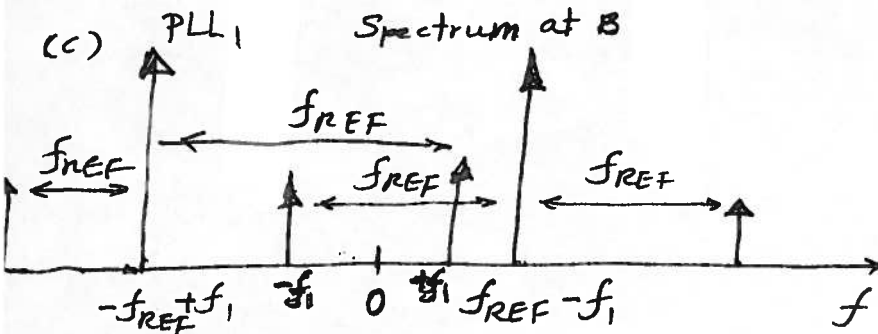 (c) PLL₁ Spectrum at B
f_REF
f_REF f_REF f_REF
-f_REF+f₁ -f₁ 0 +f₁ f_REF-f₁ f